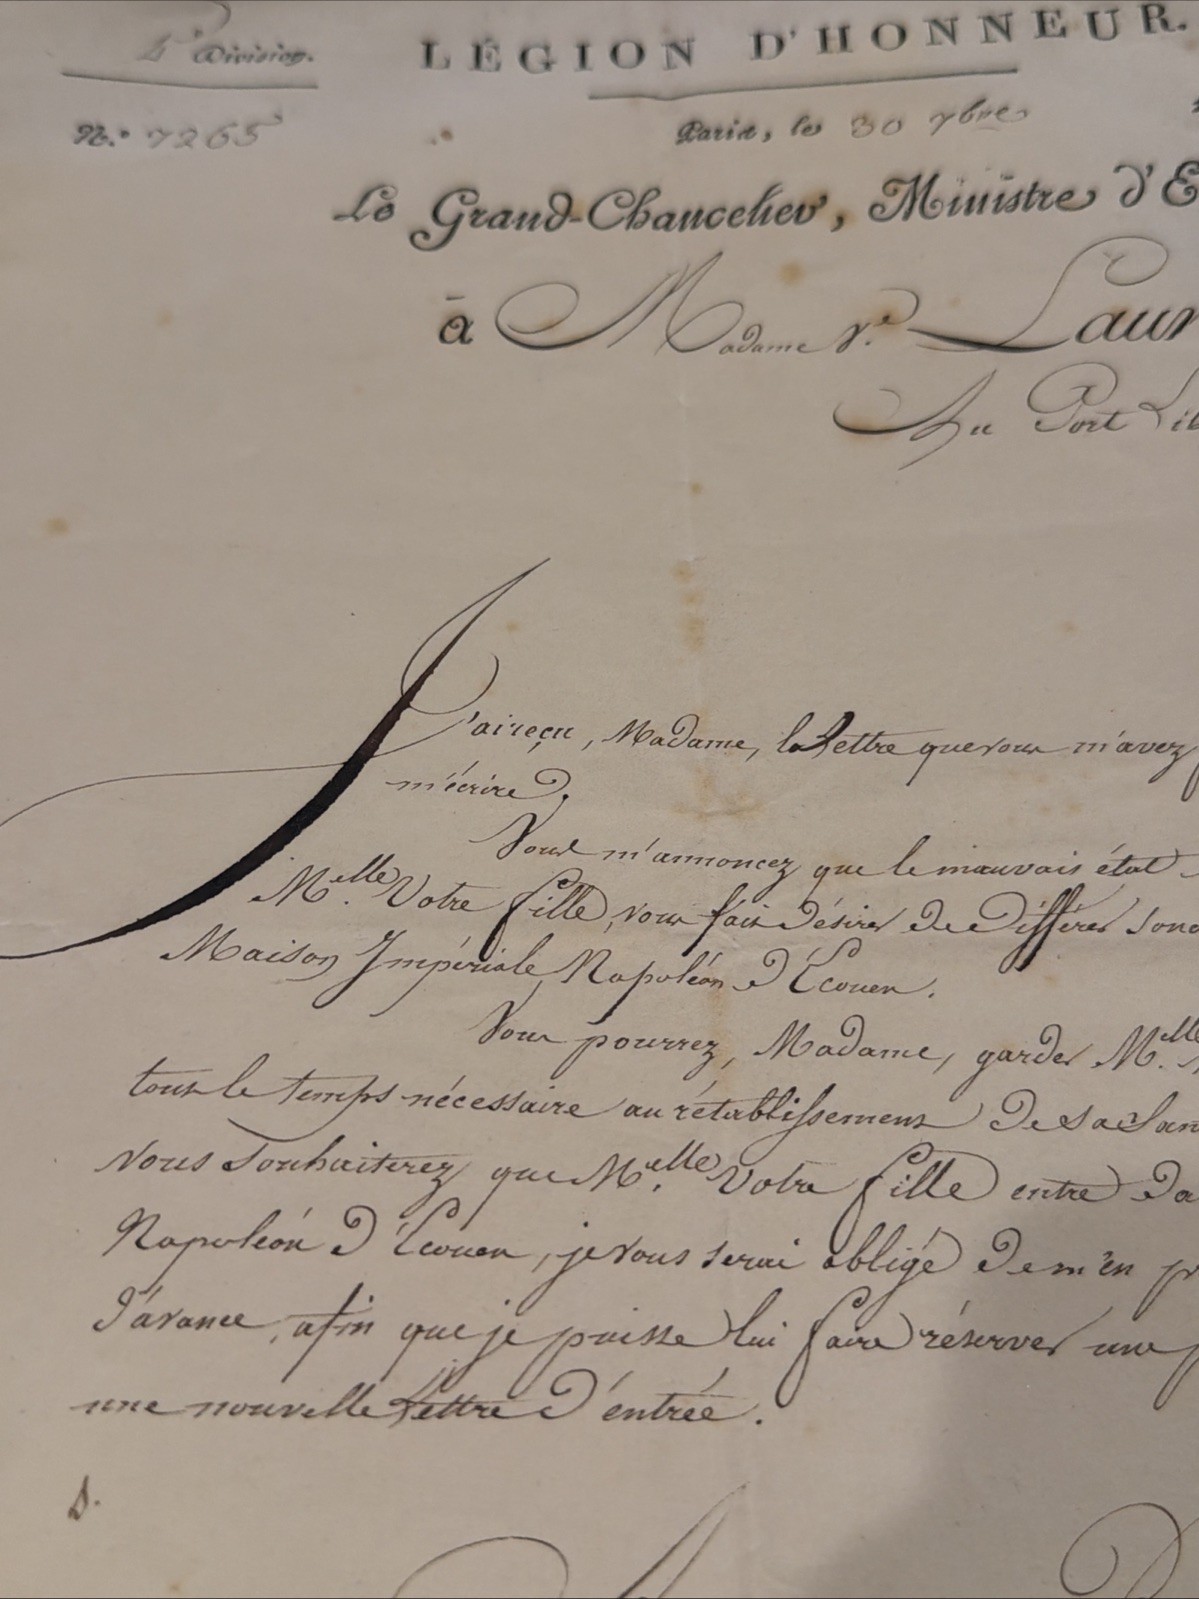 4e Division.
LÉGION D'HONNEUR.
N.º 7265
Paris, le 30 7bre
Le Grand-Chancelier, Ministre d'E
à Madame Ve. Laur
Au Port Li
J'ai reçu, Madame, la Lettre que vous m'avez
m'écrire.
Vous m'annoncez que le mauvais état
Melle. Votre fille, vous fait désirer de différer son
Maison Impériale Napoléon d'Écouen.
Vous pourrez, Madame, garder Melle.
tout le temps nécessaire au rétablissement de sa San
vous souhaiterez que Melle. Votre fille entre da
Napoléon d'Écouen, je vous serai obligé de m'en p
d'avance, afin que je puisse lui faire réserver une p
une nouvelle Lettre d'entrée.